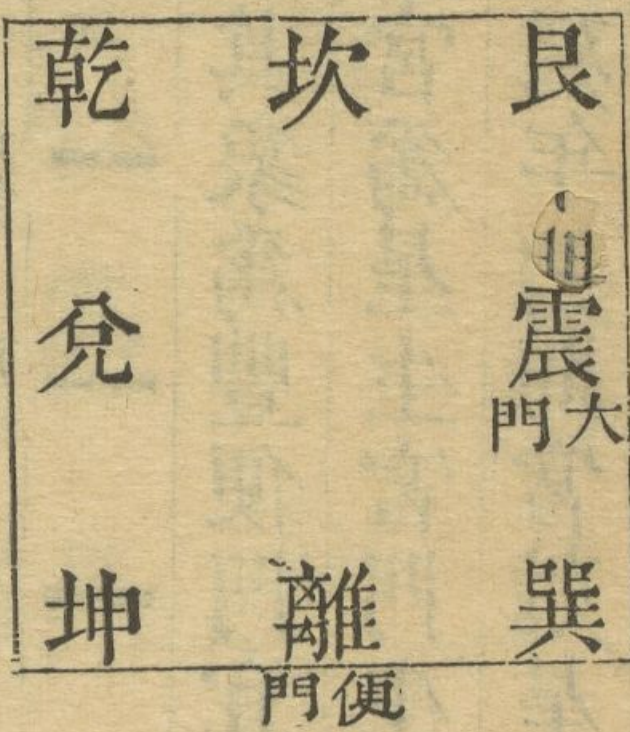 艮
坎
乾
震
大門
兌
巽
離
坤
便門